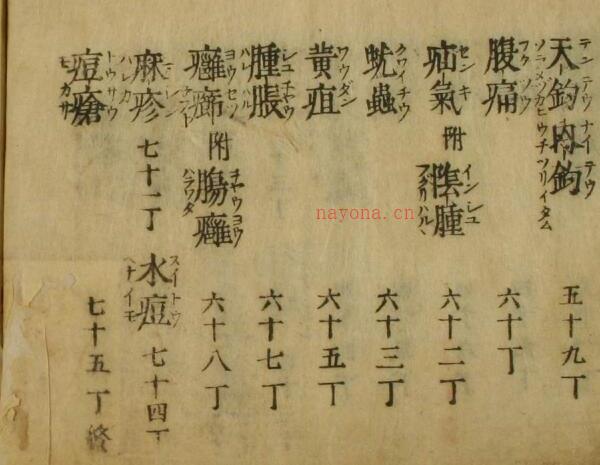 天鈎内鈎 五十九丁
テンテウナイテウ
腹痛 六十丁
フクツウ
疝氣 附 陰腫 六十二丁
センキ インシュ
蚘蟲 六十三丁
クワイチウ
黄疸 六十五丁
ワウダン
腫脹 六十七丁
シュチャウ
ハレハル
癰癤 附 腸癰 六十八丁
ヨウセツ チャウヨウ
ハラワタ
麻疹 七十一丁 水痘 七十四丁
ハレカ スイトウ
ヘナイモ
痘瘡 七十五丁終
トウサウ
ヒカサ
nayona.cn